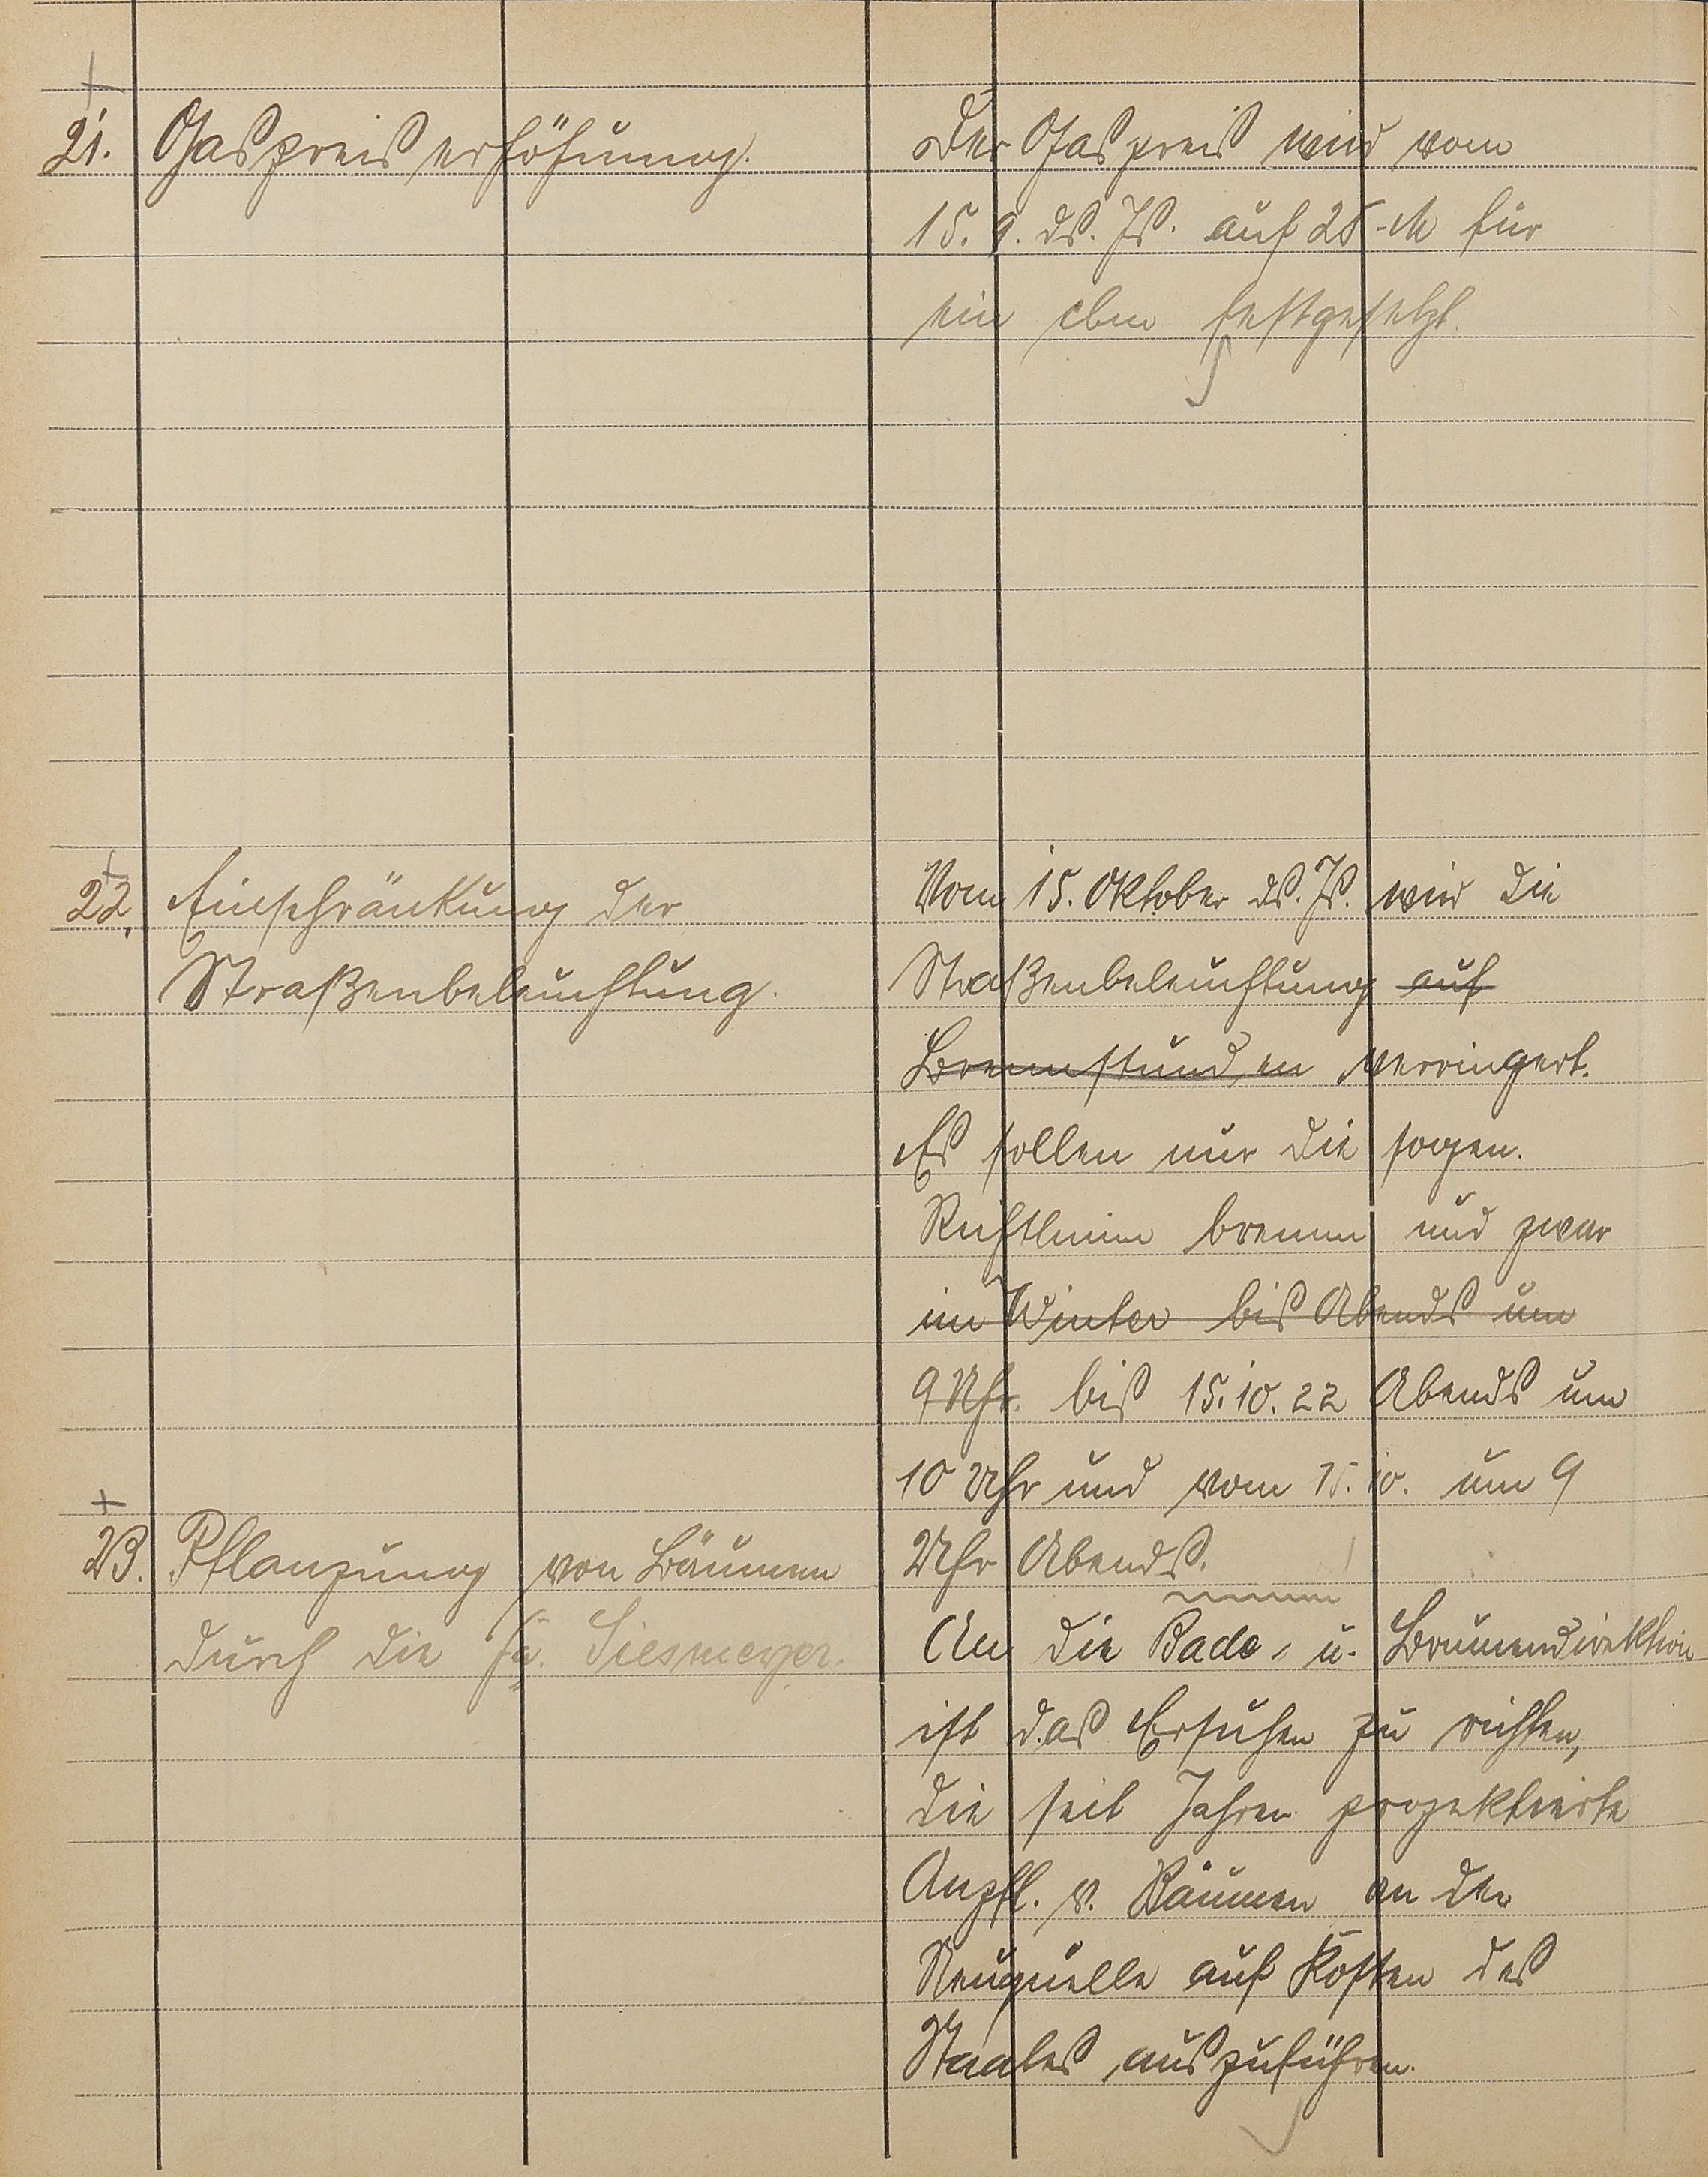 21. Gaspreiserhöhung.
Der Gaspreis wird vom
15. 9. ds. Js. auf 25 M für
ein cbm festgesetzt.
22. Einschränkung der
Straßenbeleuchtung.
Vom 15. Oktober ds. Js. wird die
Straßenbeleuchtung auf
Brennstunden verringert.
Es sollen nur die sogen.
Richtlinien brennen und zwar
im Winter bis Abends um
9 Uhr. bis 15.10.22 Abends um
10 Uhr und vom 15.10. um 9
Uhr Abends.
23. Pflanzung von Bäumen
durch die Fa. Siesmeyer.
An die Bade- u. Brunnendirektion
ist das Ersuchen zu richten,
die seit Jahren projektierte
Anpfl. v. Bäumen an der
Neuquelle auf Kosten des
Staates auszuführen.